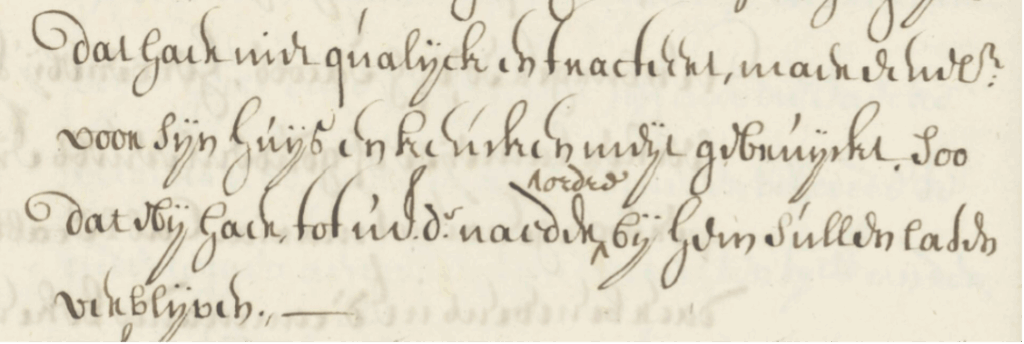 dat haer niet qualijck en tracteert, maer
voor sijn huijs en keucken meijt gebruijckt Soo
ordre
dat wij haer, tot ued:r naerdere bij hem sullen laten
verblijven.